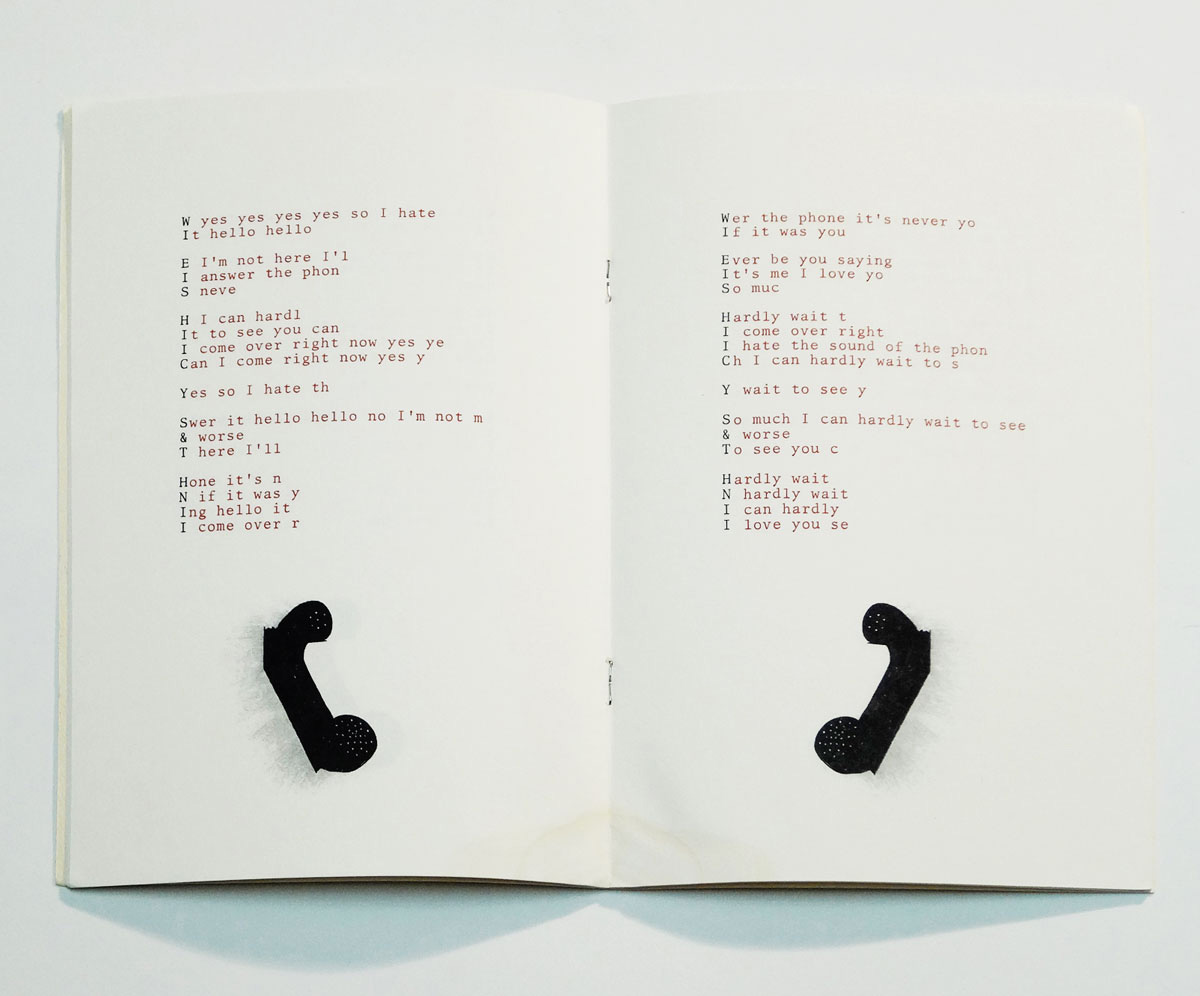 W yes yes yes yes so I hate
It hello hello
E I'm not here I'l
I answer the phon
S neve
H I can hardl
It to see you can
I come over right now yes ye
Can I come right now yes y
Yes so I hate th
Swer it hello hello no I'm not m
& worse
T here I'll
Hone it's n
N if it was y
Ing hello it
I come over r
Wer the phone it's never yo
If it was you
Ever be you saying
It's me I love yo
So muc
Hardly wait t
I come over right
I hate the sound of the phon
Ch I can hardly wait to s
Y wait to see y
So much I can hardly wait to see
& worse
To see you c
Hardly wait
N hardly wait
I can hardly
I love you se